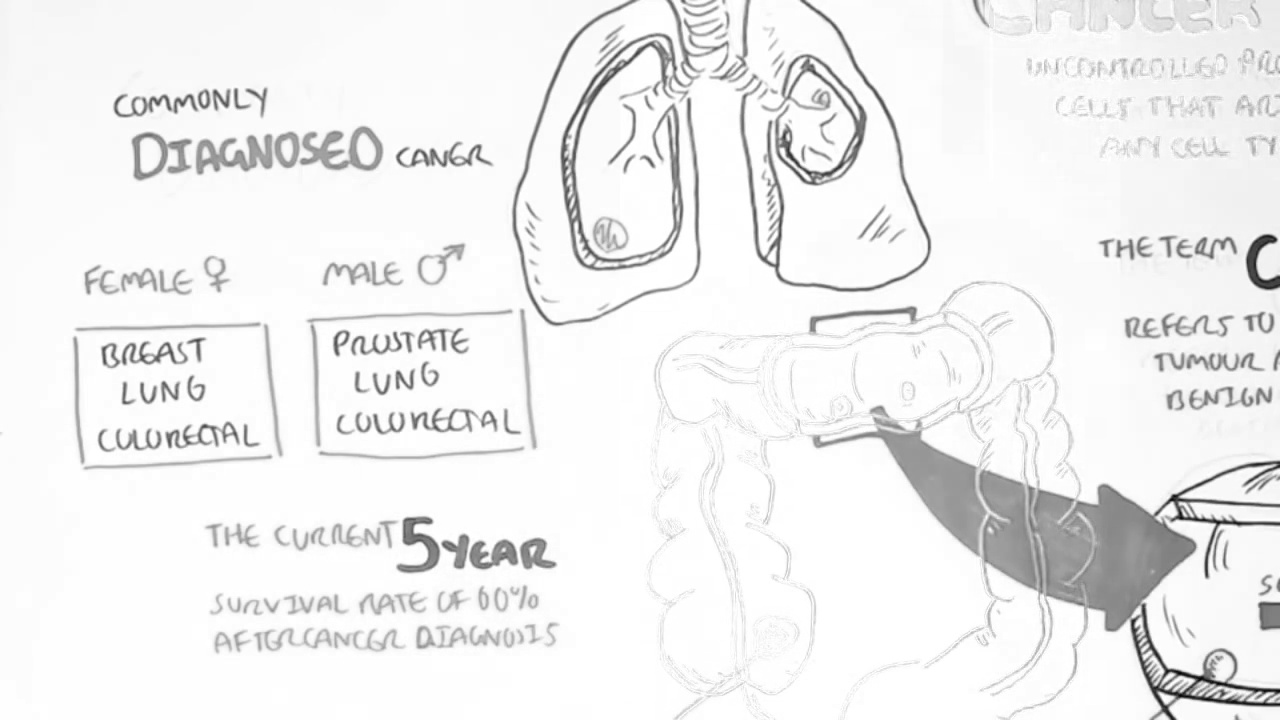 COMMONLY
DIAGNOSED CANCR
FEMALE ♀
BREAST
LUNG
COLORECTAL
MALE ♂
PROSTATE
LUNG
COLORECTAL
THE CURRENT 5 YEAR
SURVIVAL RATE OF 60%
AFTER CANCER DIAGNOSIS
CANCER
UNCONTROLLED
CELLS THAT
ANY CELL
THE TERM
REFERS TO
TUMOUR
BENIGN